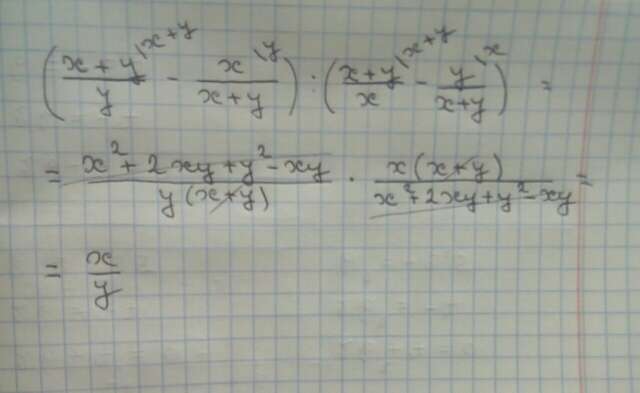 ((x+y)/y \x+y - x/(x+y) \y) : ((x+y)/x \x+y - y/(x+y) \x) =
= (x²+2xy+y²-xy)/(y(x+y)) · (x(x+y))/(x²+2xy+y²-xy) =
= x/y